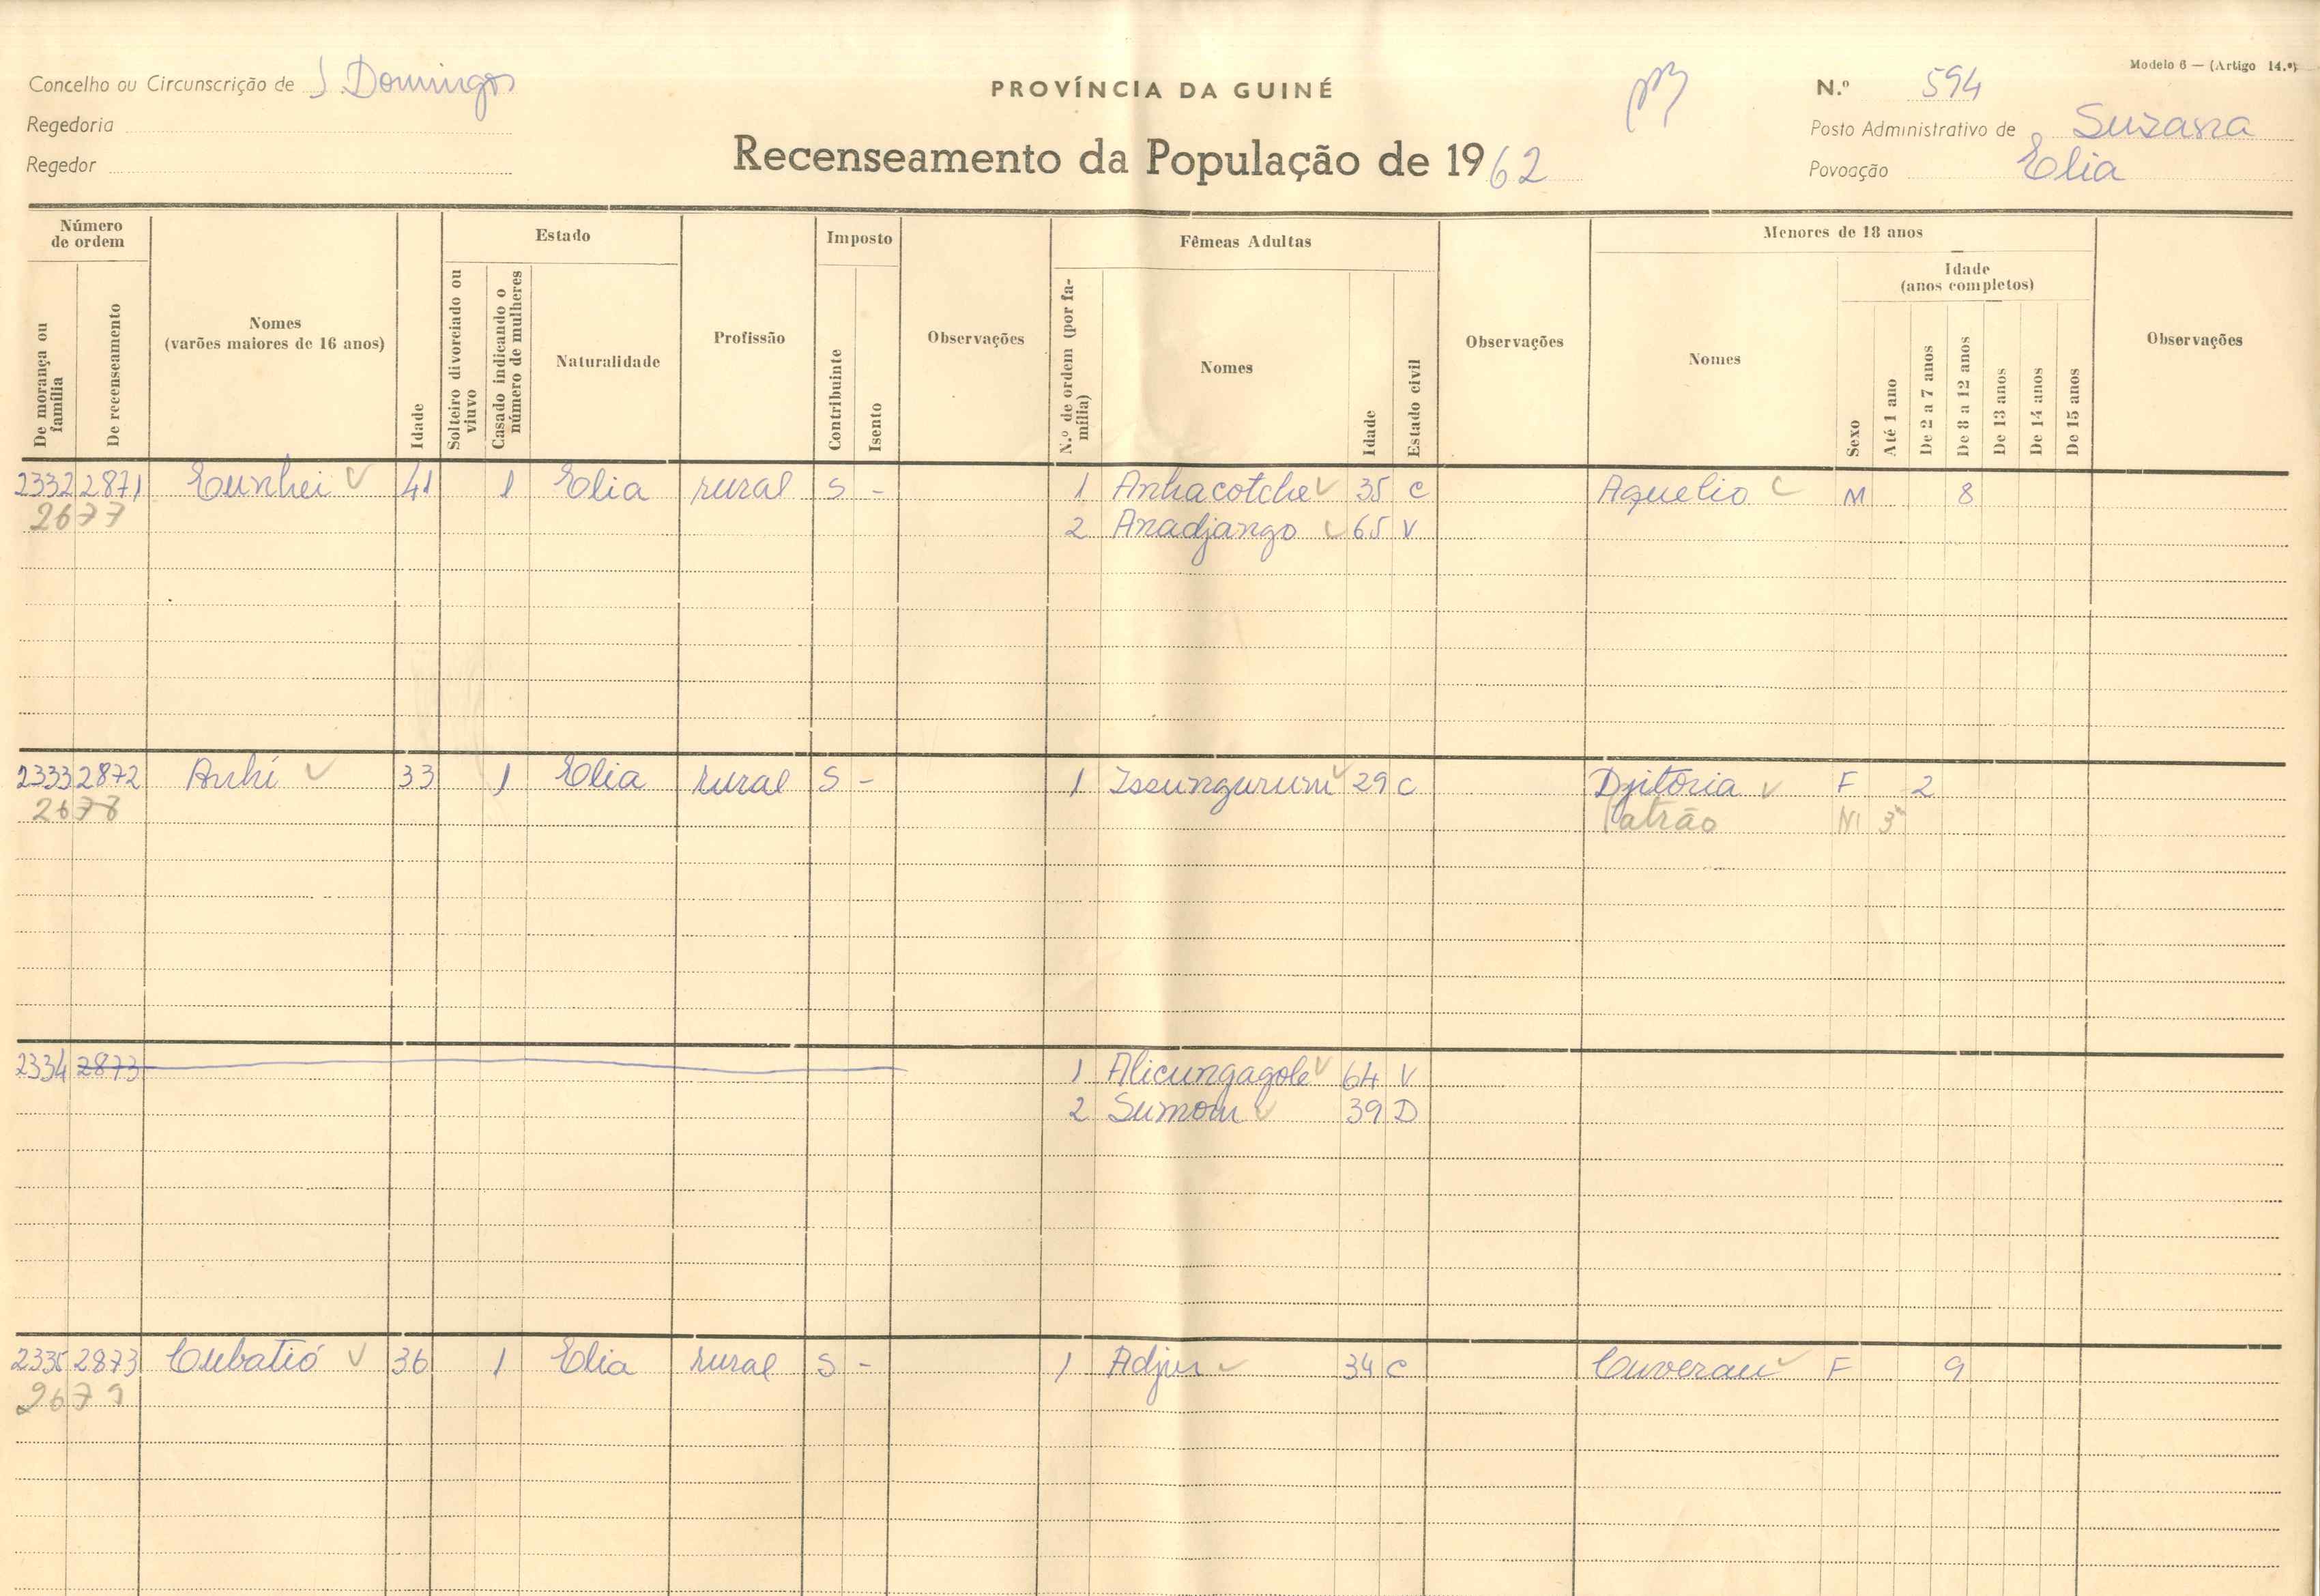 Modelo 6 — (Artigo 14.º)
Concelho ou Circunscrição de S. Domingos
PROVÍNCIA DA GUINÉ
N.º 594
Regedoria
Posto Administrativo de Suzana
Regedor
Recenseamento da População de 1962
Povoação Elia
Número de ordem
Estado
Imposto
Fêmeas Adultas
Menores de 18 anos
Idade (anos completos)
De morança ou família
De recenseamento
Nomes (varões maiores de 16 anos)
Idade
Solteiro divorciado ou viuvo
Casado indicando o número de mulheres
Naturalidade
Profissão
Contribuinte
Isento
Observações
N.º de ordem (por família)
Nomes
Idade
Estado civil
Observações
Nomes
Sexo
Até 1 ano
De 2 a 7 anos
De 8 a 12 anos
De 13 anos
De 14 anos
De 15 anos
Observações
2332 2871 Eunhei 41 1 Elia rural S - 1 Anhacotche 35 C Aquelio M 8
2677 2 Anadjango 65 V
2333 2872 Anhi 33 1 Elia rural S - 1 Issungurum 29 C Djitoria F 2
2678 Patrão M 3
2334 2873 1 Alicungagole 64 V
2 Sumom 39 D
2335 2873 Cubatió 36 1 Elia rural S - 1 Adju 34 C Cuverau F 9
2679